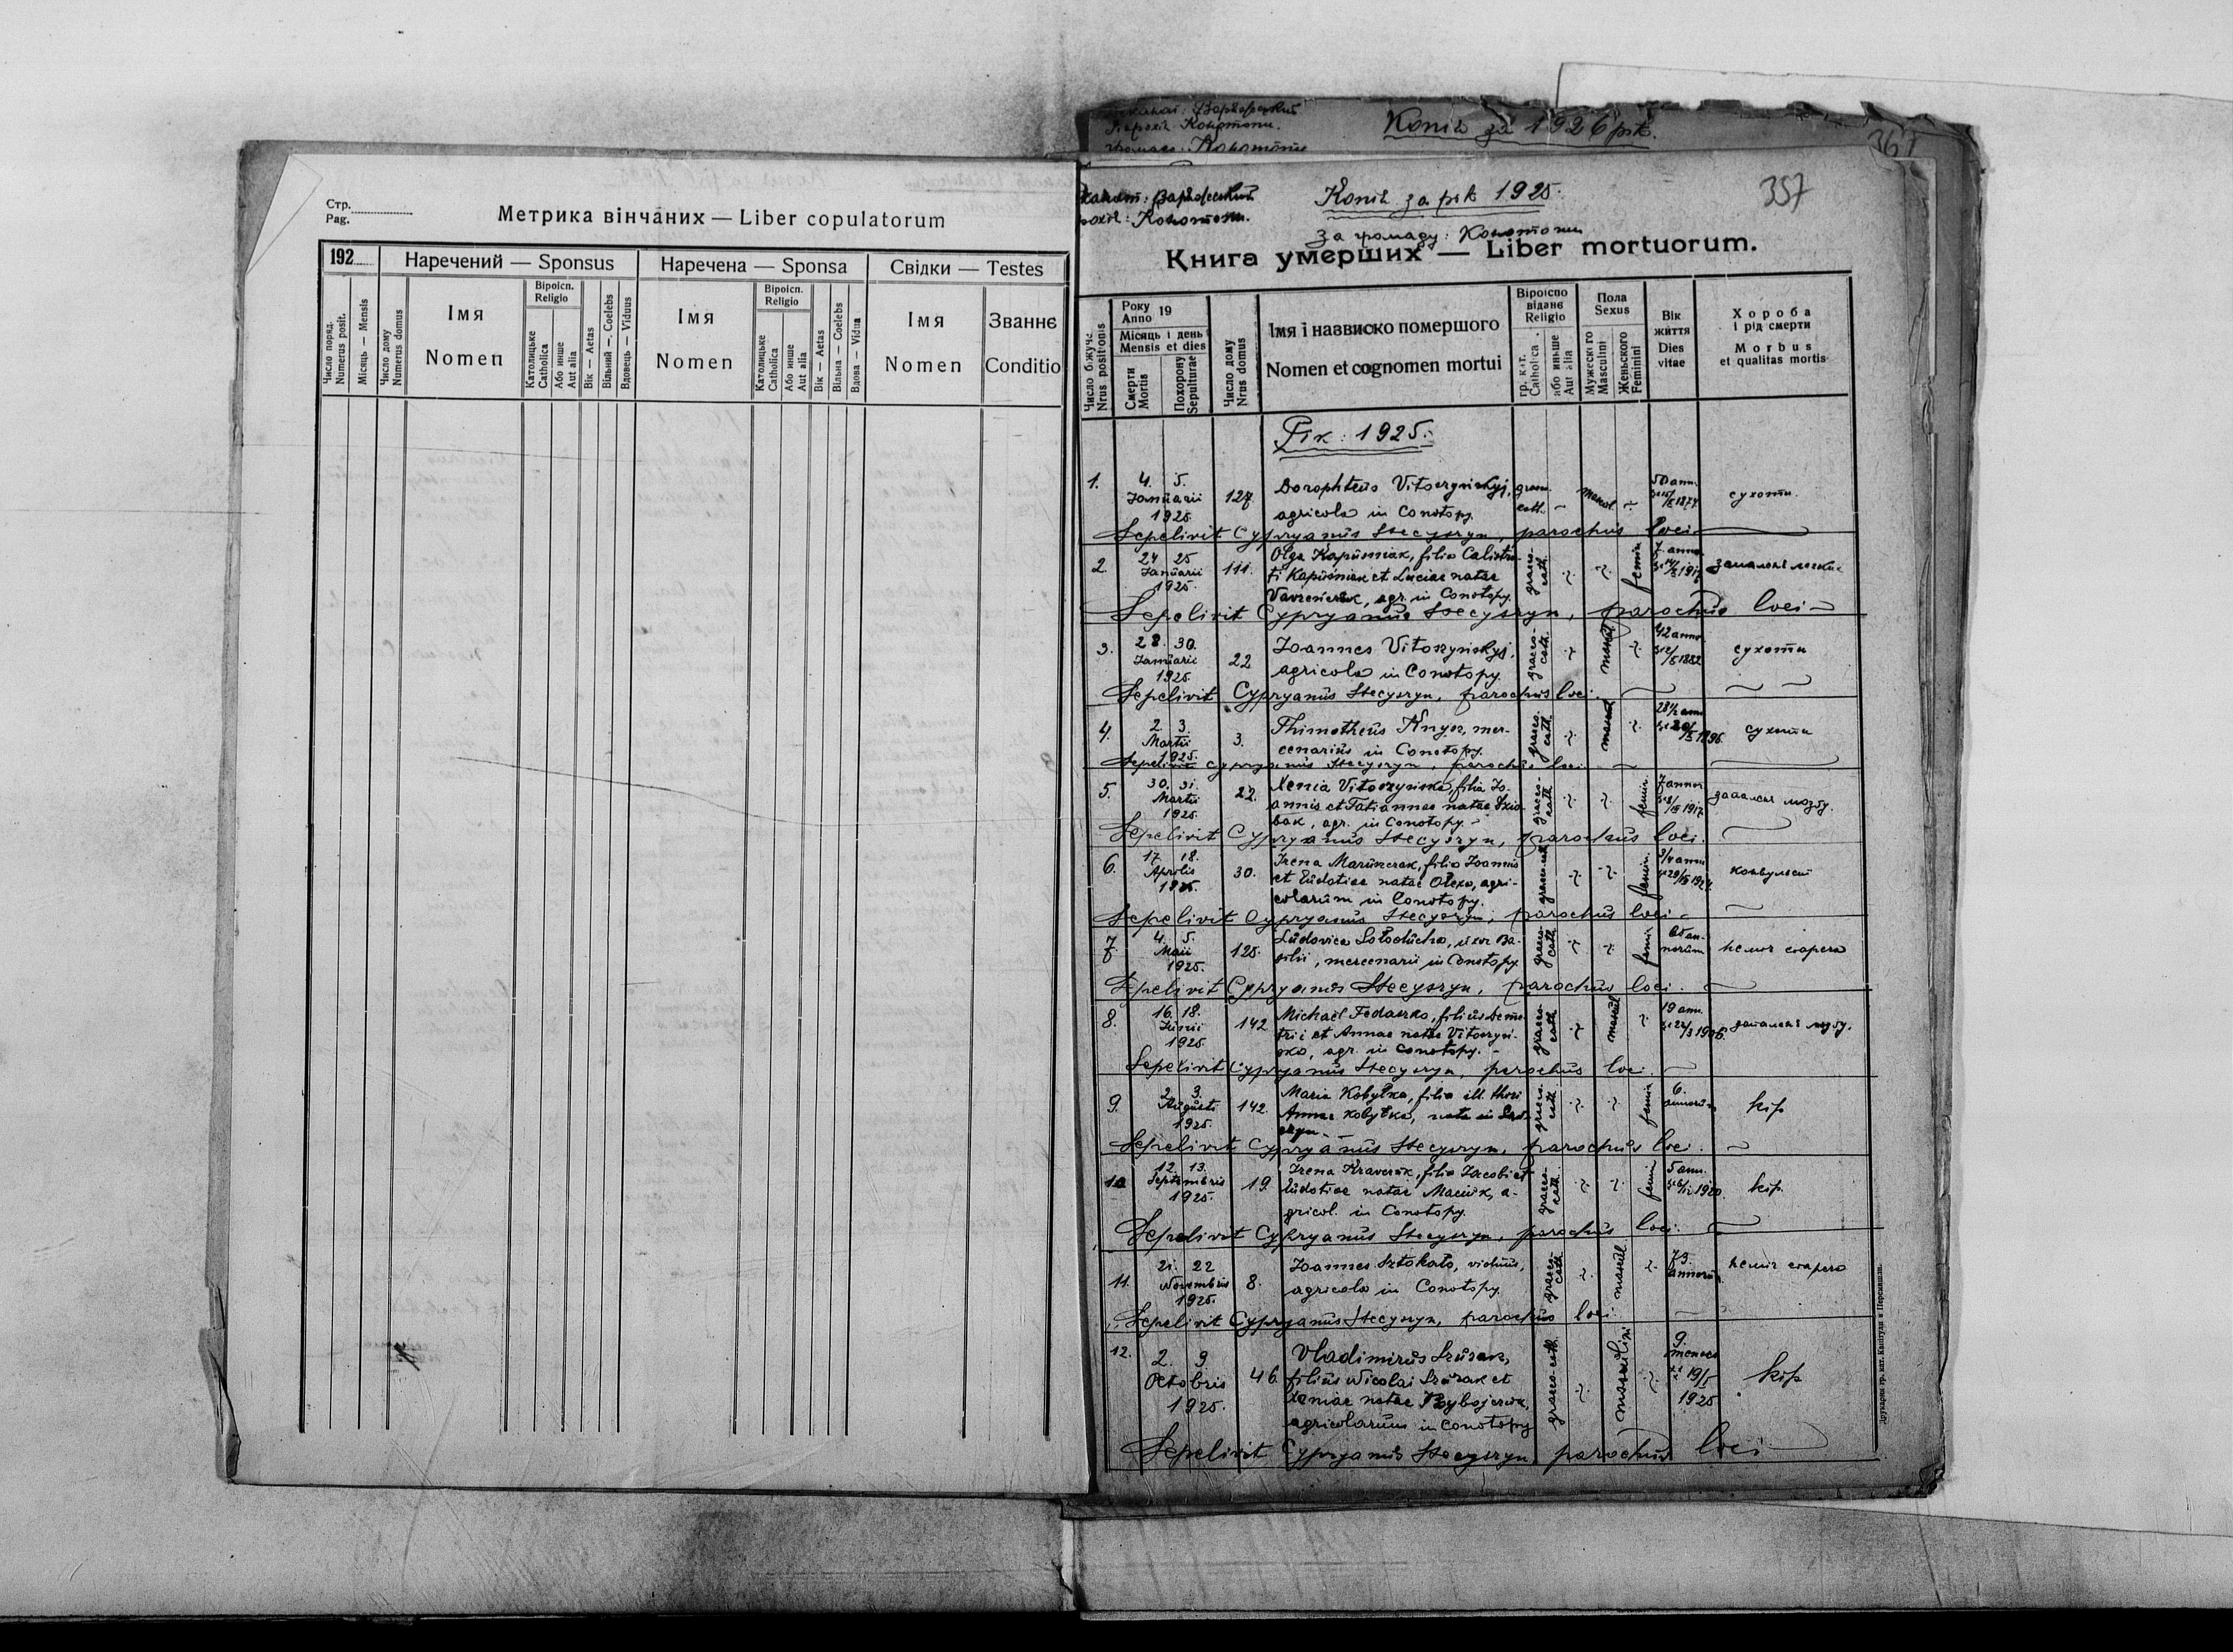 Стр.
Pag.
Метрика вінчаних — Liber copulatorum
192
Наречений — Sponsus
Наречена — Sponsa
Свідки — Testes
Число поряд.
Numerus posit.
Місяць — Mensis
Число дому
Numerus domus
Імя
Nomen
Віроісп.
Religio
Католицьке
Catholica
Або инше
Aut alia
Вік — Aetas
Вільний — Coelebs
Вдовець — Viduus
Імя
Nomen
Віроісп.
Religio
Католицьке
Catholica
Або инше
Aut alia
Вік — Aetas
Вільна — Coelebs
Вдова — Vidua
Імя
Nomen
Званнє
Conditio
Конотопи.
Копія за 1926 рік.
367
Конотопи
Копія за рік 1925.
357
Конотопи.
За громаду: Конотопи
Книга умерших — Liber mortuorum.
Число біжуче
Nrus positionis
Року
Anno 19
Місяць і день
Mensis et dies
Смерти
Mortis
Похорону
Sepulturae
Число дому
Nrus domus
Імя і назвиско помершого
Nomen et cognomen mortui
Віроіспо
віданє
Religio
гр. кат.
Catholica
або иньше
Aut alia
Пола
Sexus
Мужеского
Masculini
Женьского
Feminini
Вік
життя
Dies
vitae
Хороба
і рід смерти
Morbus
et qualitas mortis
Рік: 1925.
1. 4. 5. Januarii 1925 127. Dorophteus Vitoszynskyj, graec. cath. mascul 50 ann. сухоти.
agricola in Conotopy.
Sepelivit Cypryanus Stecyszyn, parochus loci
2. 24 25 Januarii 1925. 111. Olga Kapusniak, filia Calistra-
ti Kapusniak et Luciae natae graeco-cath. femin 7. anno
agr. in Conotopy.
Sepelivit Cypryanus Stecyszyn, parochus loci
3. 28. 30. Januarii 1925 22 Joannes Vitoszynskyj, graeco-cath. mascul 42 anno 1882 сухоти
agricola in Conotopy.
Sepelivit Cypryanus Stecyszyn, parochus loci.
4. 2. 3. Martii 1925. 3. Thimotheus Knysz, mer- graeco-cath. mascul 28½ ann 1896 сухоти
cenarius in Conotopy.
Sepelivit Cypryanus Stecyszyn, parochus loci
5. 30. 31. Martii 1925 22. Xenia Vitoszynska, filia Jo-
annis et Tatiannae natae graeco-cath. femin. 7 annor 1917 запаленя мозгу.
agr. in Conotopy.
Sepelivit Cypryanus Stecyszyn, parochus loci.
6. 17. 18. Aprilis 1925. 30. Irena Marunczak, filia Joannis
et Eudotiae natae Olexa, agri- femin. 3/4 ann 1924 конвульсиі
colarum in Conotopy.
Sepelivit Cypryanus Stecyszyn, parochus loci
7. 4. 5. Maii 1925. 125. Ludovica Soloducha, uxor Ba- graeco-cath. femin an-
silii, mercenarii in Conotopy. norum
Sepelivit Cypryanus Stecyszyn, parochus loci.
8. 16. 18. Junii 1925 142 Michael Fedaszko, filius Deme- graeco-cath. mascul 19 ann. 1906 запаленя мозгу.
trii et Annae natae
agr. in Conotopy.
Sepelivit Cypryanus Stecyszyn, parochus loci.
9. 2. 3. Augusti 1925. 142. Maria Kobylka, filia ill. thori graeco-cath. femin 6. annorum кір
Annae Kobylka, nata in
Sepelivit Cypryanus Stecyszyn, parochus loci.
10 12. 13. Septembris 1925. 19. Irena Kravczuk, filia Jacobi et graeco-cath. femin 5 ann. 1920. кір
Eudotiae natae a-
gricol. in Conotopy.
Sepelivit Cypryanus Stecyszyn, parochus loci.
11. 21. 22 Novembris 1925. 8. Joannes Sztokalo, viduus, graeco-cath. mascul 73. annorum
agricola in Conotopy.
Sepelivit Cypryanus Stecyszyn, parochus loci
12. 2. 9 Octobris 1925. 46 Vladimirus graeco-cath. masculini 9. menses 19/I 1925 кір
filius Nicolai et
Xeniae natae
agricolarum in Conotopy
Sepelivit Cypryanus Stecyszyn parochus loci
Друкарня гр. кат. Капітули в Перемишли.